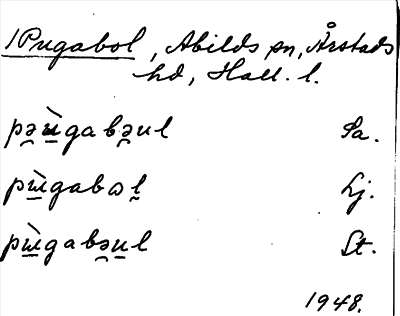 1 Pugabol, Abilds sn, Årstads
hd, Hall. l.
pə̯ù̱gabə̯ul Sa.
pɯ̱̀gabɷḻ Lj.
pɯ̱̀gabə̯u̱l St.
1948.